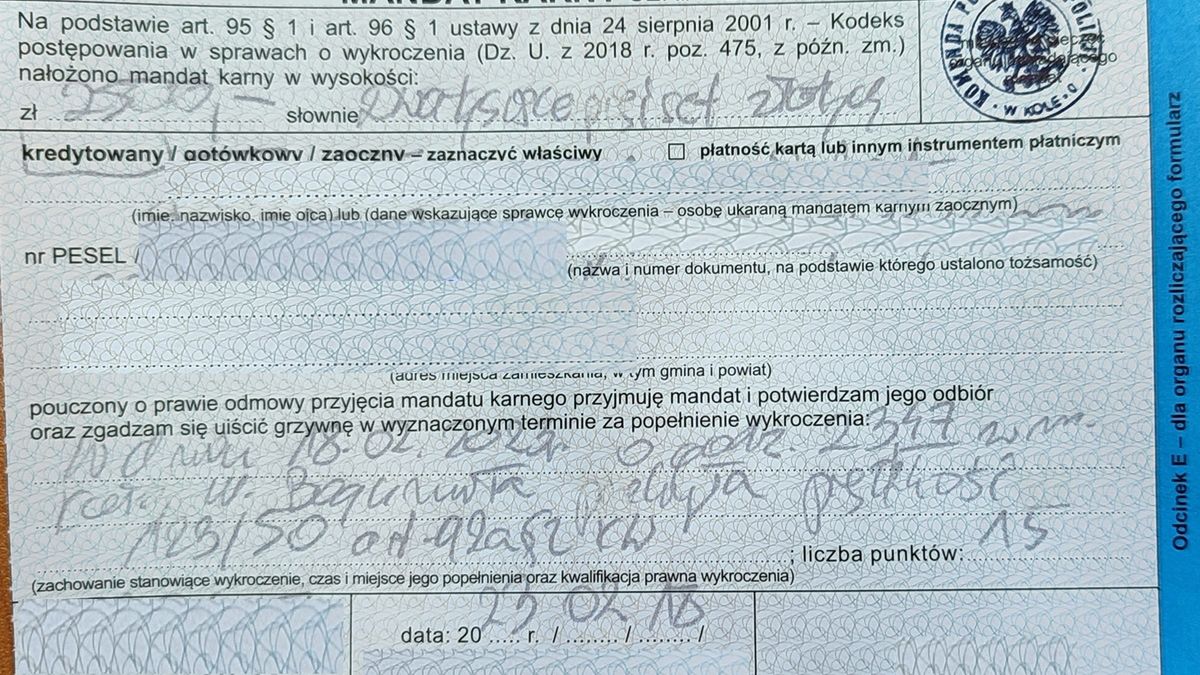 MANDAT KARNY
Na podstawie art. 95 § 1 i art. 96 § 1 ustawy z dnia 24 sierpnia 2001 r. – Kodeks
postępowania w sprawach o wykroczenia (Dz. U. z 2018 r. poz. 475, z późn. zm.)
nałożono mandat karny w wysokości:
zł 2500,– słownie dwa tysiące pięćset złotych
W KOLE
kredytowany / gotówkowy / zaoczny – zaznaczyć właściwy
płatność kartą lub innym instrumentem płatniczym
(imię, nazwisko, imię ojca) lub (dane wskazujące sprawcę wykroczenia – osobę ukaraną mandatem karnym zaocznym)
nr PESEL
(nazwa i numer dokumentu, na podstawie którego ustalono tożsamość)
(adres miejsca zamieszkania, w tym gmina i powiat)
pouczony o prawie odmowy przyjęcia mandatu karnego przyjmuję mandat i potwierdzam jego odbiór
oraz zgadzam się uiścić grzywnę w wyznaczonym terminie za popełnienie wykroczenia:
W dniu 18.02.2023r. o godz. 2347 w m.
w. prędkość
123/50 art 92a§2 kw
; liczba punktów: 15
(zachowanie stanowiące wykroczenie, czas i miejsce jego popełnienia oraz kwalifikacja prawna wykroczenia)
data: 20 23 r. / 02 / 18 /
Odcinek E – dla organu rozliczającego formularz